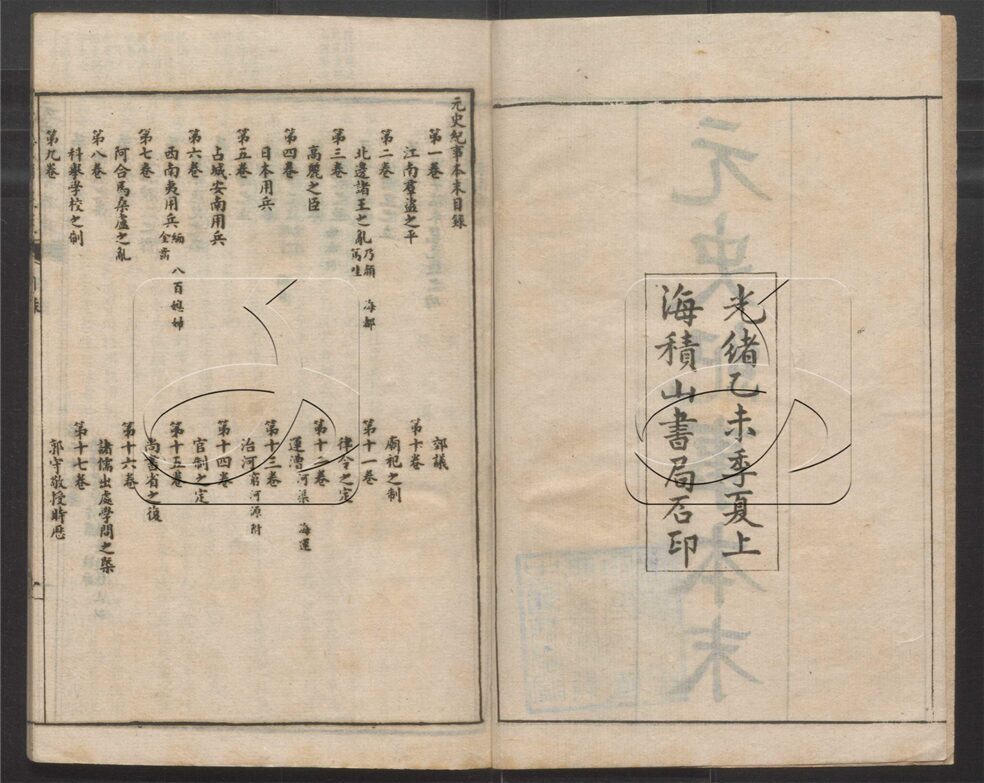 光緒乙未季夏上
海積山書局石印
元史紀事本末目錄
第一卷
江南羣盜之平
第二卷
北邊諸王之亂 乃顏 海都 篤哇
第三卷
高麗之臣
第四卷
日本用兵
第五卷
占城安南用兵
第六卷
西南夷用兵 緬 八百媳婦 金齒
第七卷
阿合馬桑盧之亂
第八卷
科舉學校之制
第九卷
郊議
第十卷
廟祀之制
第十一卷
律令之定
第十二卷
運漕 河渠 海運
第十三卷
治河 窮河源附
第十四卷
官制之定
第十五卷
尚書省之復
第十六卷
諸儒出處學問之槩
第十七卷
郭守敬授時厯